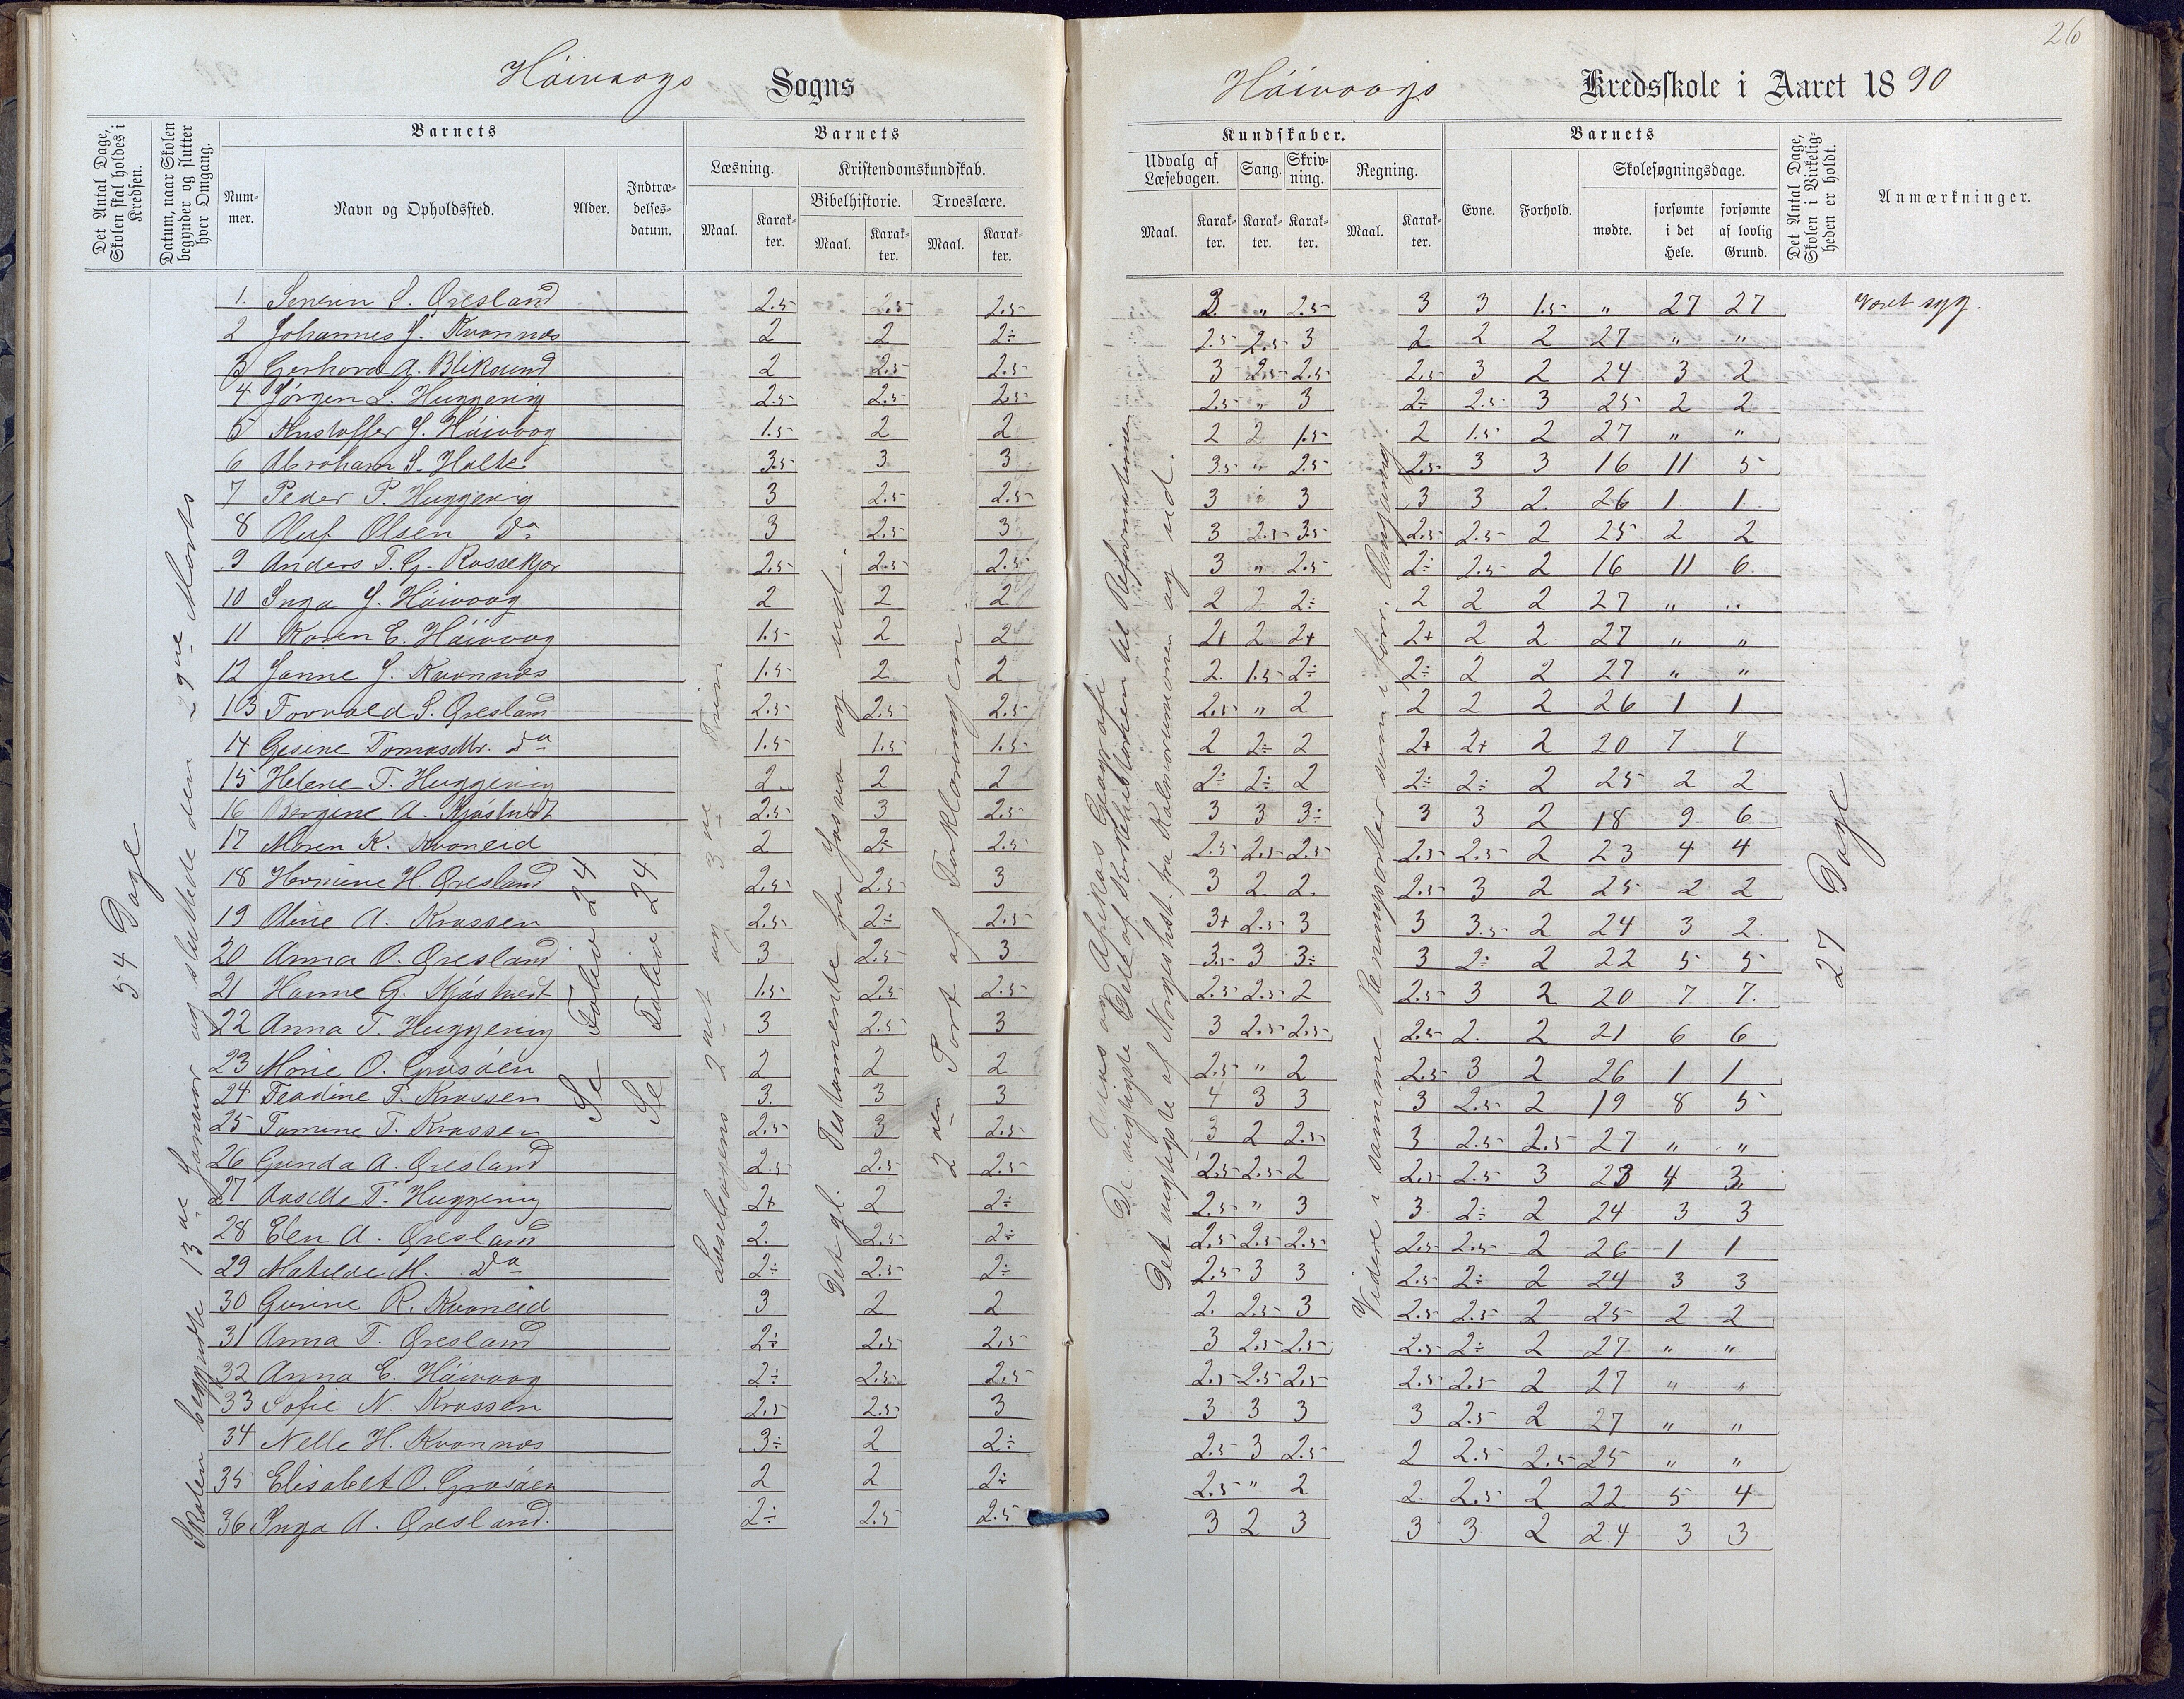 26
Höivaags Sogns
Höivaags Kredsskole i Aaret 1890
Det Antal Dage, Skolen skal holdes i Kredsen.
Datum, naar Skolen begynder og slutter hver Omgang.
Barnets
Nummer.
Navn og Opholdssted.
Alder.
Indtrædelsesdatum.
Barnets
Læsning.
Kristendomskundskab.
Bibelhistorie.
Troeslære.
Maal. Karakter. Maal. Karakter. Maal. Karakter.
Kundskaber.
Udvalg af Læsebogen. Sang. Skrivning. Regning.
Maal. Karakter. Karakter. Karakter. Maal. Karakter.
Barnets
Evne. Forhold.
Skolesøgningsdage.
mødte. forsømte i det Hele. forsømte af lovlig Grund.
Det Antal Dage, Skolen i Virkeligheden er holdt.
Anmærkninger.
54 Dage
Skolen begyndte 13de Januar og sluttede den 29de Marts
Se Folio 24
Se Folio 24
Læsebogens 2net og 3die Trin
Det gl. Testamente fra Josva og ud.
2den Part af Forklaringen
Asias og Afrikas Geografi
De vigtigste Dele af Kirkehistorien til Reformationen
Det vigtigste af Norgeshist. fra Kalmarunionen og ud.
Videre i samme Regningsarter som i forr. Omgang.
27 Dage
1. Senein S. Øresland 2.5 2.5 2.5 3 " 2.5 3 3 1.5 " 27 27 Været syg.
2 Johannes J. Kvannes 2 2 2÷ 2.5 2.5 3 2 2 2 27 " "
3 Gerhard A. Bliksund 2 2.5 2.5 3 2.5 2.5 2.5 3 2 24 3 2
4 Jørgen L. Huggevig 2.5 2.5 2.5 2.5 " 3 2÷ 2.5 3 25 2 2
5 Kristoffer J. Höivaag 1.5 2 2 2 2 1.5 2 1.5 2 27 " "
6 Abraham S. Holte 3.5 3 3 3.5 " 2.5 2.5 3 3 16 11 5
7 Peder P. Huggevig 3 2.5 2.5 3 " 3 3 3 2 26 1 1
8 Oluf Olsen Do 3 2.5 3 3 2.5 3.5 2.5 2.5 2 25 2 2
9 Anders T. G. Rossekjær 2.5 2.5 2.5 3 " 2.5 2÷ 2.5 2 16 11 6
10 Inga J. Höivaag 2 2 2 2 2 2÷ 2 2 2 27 " "
11 Karen E. Höivaag 1.5 2 2 2+ 2 2+ 2+ 2 2 27 " "
12 Janne J. Kvannes 1.5 2 2 2. 1.5 2÷ 2÷ 2 2 27 " "
13 Torvald S. Øresland 2.5 2.5 2.5 2.5 " 2 2 2 2 26 1 1
14 Gesine Tomasdtr. Do 1.5 1.5 1.5 2 2÷ 2 2+ 2+ 2 20 7 7
15 Helene T. Huggevig 2 2 2 2÷ 2÷ 2 2÷ 2÷ 2 25 2 2
16 Bergine A. Kjöstvedt 2.5 3 2.5 3 3 3÷ 3 3 2 18 9 6
17 Maren K. Kvaneid 2 2÷ 2.5 2.5 2.5 2.5 2.5 2.5 2 23 4 4
18 Hermine H. Øresland 2.5 2.5 3 3 2 2. 2.5 3 2 25 2 2
19 Oline A. Krossen 2.5 2÷ 2.5 3+ 2.5 3 3 3.5 2 24 3 2
20 Anna O. Øresland 3 2.5 3 3.5 3 3÷ 3 2÷ 2 22 5 5
21 Hanne G. Kjöstvedt 1.5 2.5 2.5 2.5 2.5 2 2.5 3 2 20 7 7.
22 Anna T. Huggevig 3 2.5 3 3 2.5 2.5 2.5 2. 2 21 6 6
23 Marie O. Grosåen 2 2 2 2.5 " 2 2.5 3 2 26 1 1
24 Teadine T. Krossen 3. 3 3 4 3 3 3 2.5 2 19 8 5
25 Tomine T. Krossen 2.5 3 2.5 3 2 2.5 3 2.5 2.5 27 " "
26 Gunda A. Øresland 2.5 2.5 2.5 2.5 2.5 2 2.5 2.5 3 23 4 3
27 Aaselle T. Huggevig 2+ 2 2÷ 2.5 " 3 3 2÷ 2 24 3 3
28 Elen A. Øresland 2. 2.5 2÷ 2.5 2.5 2.5 2.5 2.5 2 26 1 1
29 Matilde M. Do 2÷ 2.5 2÷ 2.5 3 3 2.5 2÷ 2 24 3 3
30 Gurine R. Kvaneid 3 2 2 2. 2.5 3 2.5 2.5 2 25 2 2
31 Anna T. Øresland 2÷ 2.5 2.5 3 2.5 2.5 2.5 2÷ 2 27 " "
32 Anna E. Höivaag 2÷ 2.5 2.5 2.5 2.5 2.5 2.5 2.5 2 27 " "
33 Sofie N. Krossen 2.5 2.5 3 3 3 3 3 2.5 2 27 " "
34 Nelle H. Kvannes 3÷ 2 2÷ 2.5 3 2.5 2 2.5 2.5 25 " "
35 Elisabet O. Grosåen 2 2 2÷ 2.5 " 2 2. 2.5 2 22 5 4
36 Inga A. Øresland. 2÷ 2.5 2.5 3 2 3 3 3 2 24 3 3